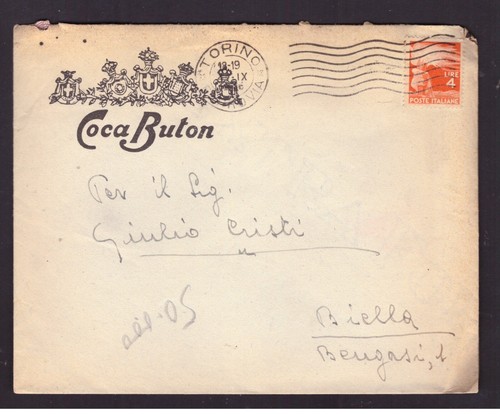 TORINO
18-19
IX
LIRE
4
POSTE ITALIANE
Coca Buton
Per il Sig.
Giulio Cristi
Biella
Bengasi, 1